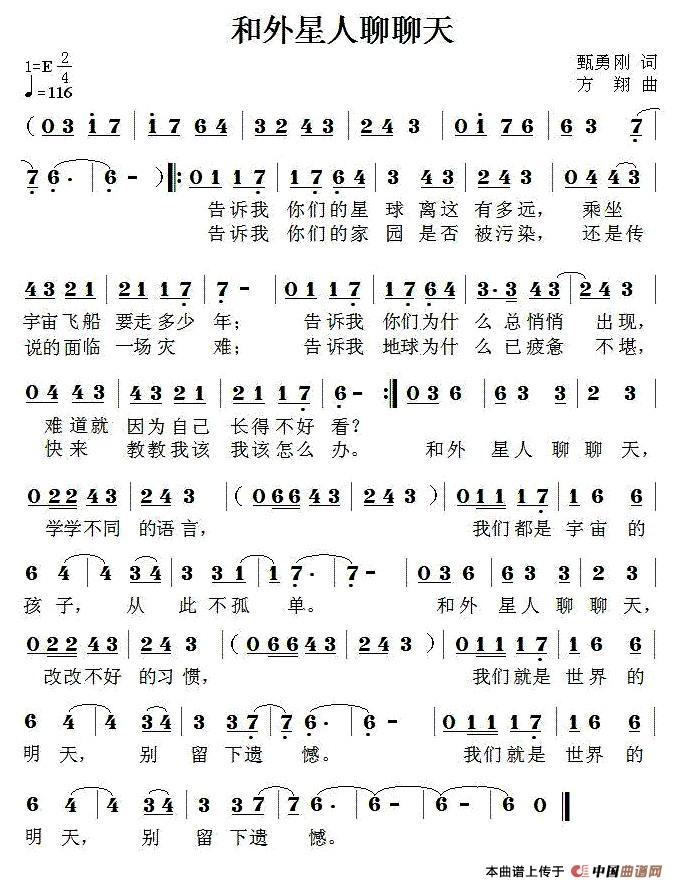 和外星人聊聊天
1=E 2/4
♩=116
甄勇刚 词
方 翔 曲
( 0 3 1 7 | 1 7 6 4 | 3 2 4 3 | 2 4 3 | 0 1 7 6 | 6 3 7 |
7 6· | 6 - ) ‖: 0 1 1 7 | 1 7 6 4 | 3 4 3 | 2 4 3 | 0 4 4 3 |
告诉我 你们的星 球 离这 有多远， 乘坐
告诉我 你们的家 园 是否 被污染， 还是传
4 3 2 1 | 2 1 1 7 | 7 - | 0 1 1 7 | 1 7 6 4 | 3· 3 4 3 | 2 4 3 |
宇宙飞船 要走多少 年； 告诉我 你们为什 么 总悄悄 出现，
说的面临 一场灾 难； 告诉我 地球为什 么 已疲惫 不堪，
0 4 4 3 | 4 3 2 1 | 2 1 1 7 | 6 - :‖ 0 3 6 | 6 3 3 | 2 3 |
难道就 因为自己 长得不好 看？
快来 教教我该 我该怎么 办。 和外 星人 聊 聊天，
0 2 2 4 3 | 2 4 3 | ( 0 6 6 4 3 | 2 4 3 ) | 0 1 1 1 7 | 1 6 6 |
学学不同 的语言， 我们都是 宇宙 的
6 4 | 4 3 4 | 3 3 1 | 1 7· | 7 - | 0 3 6 | 6 3 3 | 2 3 |
孩 子， 从 此 不孤 单。 和外 星人 聊 聊天，
0 2 2 4 3 | 2 4 3 | ( 0 6 6 4 3 | 2 4 3 ) | 0 1 1 1 7 | 1 6 6 |
改改不好 的习惯， 我们就是 世界 的
6 4 | 4 3 4 | 3 3 7 | 7 6· | 6 - | 0 1 1 1 7 | 1 6 6 |
明 天， 别 留 下遗 憾。 我们就是 世界 的
6 4 | 4 3 4 | 3 3 7 | 7 6· | 6 - | 6 - | 6 0 ‖
明 天， 别 留 下遗 憾。
本曲谱上传于 中国曲谱网